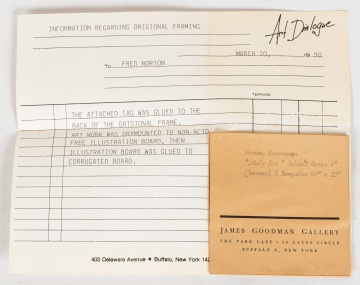 INFORMATION REGARDING ORIGIONAL FRAMING
Art Dialogue
MARCH 20, 19 90
To FRED NORTON
TERMS:
THE ATTACHED TAG WAS GLUED TO THE
BACK OF THE ORIGIONAL FRAME.
ART WORK WAS DRYMOUNTED TO NON-ACID
FREE ILLUSTRATION BOARD, THEN
ILLUSTRATION BOARD WAS GLUED TO
CORRUGATED BOARD.
403 Delaware Avenue • Buffalo, New York 142
Harvey Breverman
"Study for
Charcoal &
JAMES GOODMAN GALLERY
THE PARK LANE • 33 GATES CIRCLE
BUFFALO 9, NEW YORK